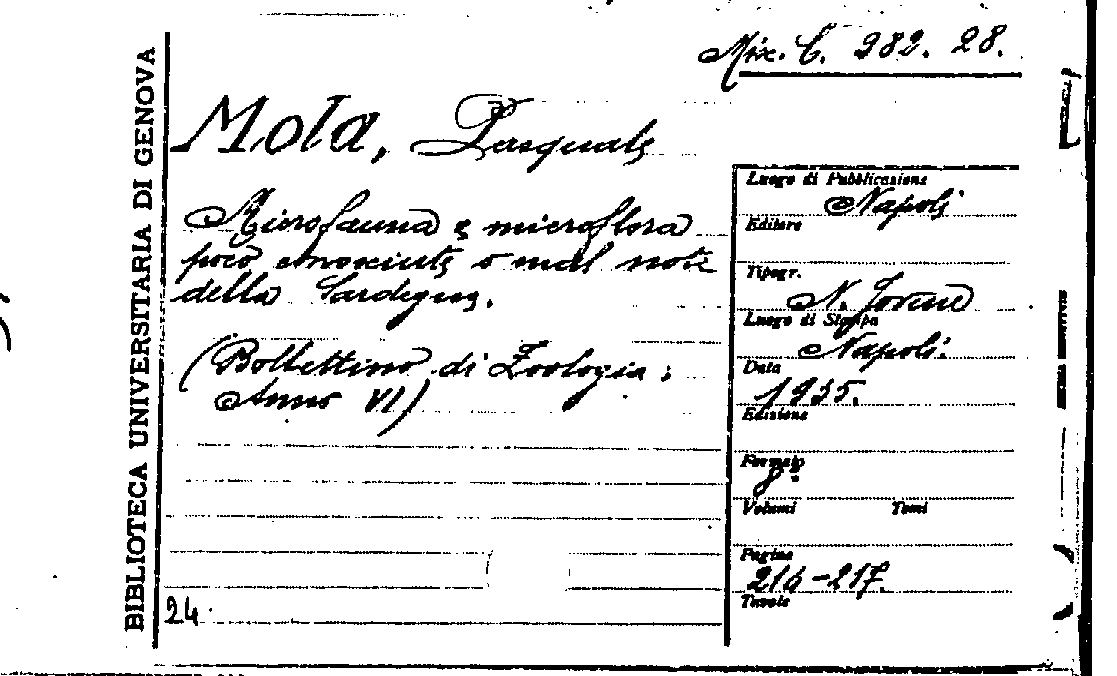 BIBLIOTECA UNIVERSITARIA DI GENOVA
Mix. C. 382. 28.
Mola, Pasquale
Microfauna e microflora
poco conosciute o mal note
della Sardegna.
(Bollettino di Zoologia;
Anno VI)
24.
Luogo di Pubblicazione
Napoli
Editore
Tipogr.
N. Jovene
Luogo di Stampa
Napoli.
Data
1935.
Edizione
Formato
8°
Volumi Tomi
Pagine
216-217.
Tavole